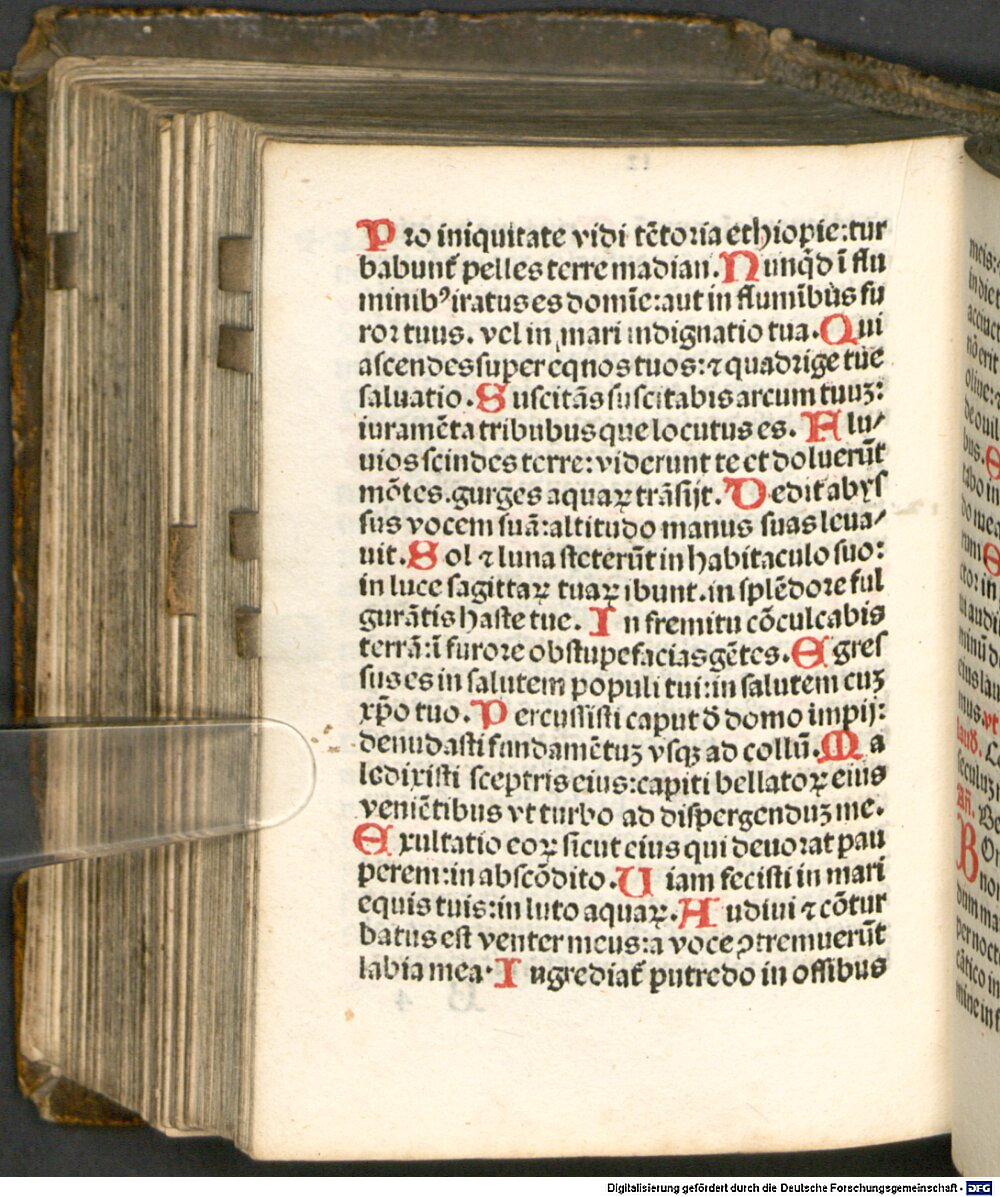 Pro iniquitate vidi tētoria ethiopie: tur
babunt᷑ pelles terre madian. Nunqd̄ ī flu
minibꝰ iratus es domīe: aut in flumībus fu
ror tuus. vel in mari indignatio tua. Qui
ascendes super eqnos tuos: ⁊ quadrige tue
saluatio. Suscitās suscitabis arcum tuuʒ:
iuramēta tribubus que locutus es. Flu/
uios scindes terre: viderunt te et doluerūt
mōtes. gurges aquaꝝ trāsijt. Dedit abys
sus vocem suā: altitudo manus suas leua/
uit. Sol ⁊ luna steterūt in habitaculo suo:
in luce sagittaꝝ tuaꝝ ibunt. in splēdore ful
gurātis haste tue. In fremitu cōculcabis
terrā: ī furore obstupefacias gētes. Egres
sus es in salutem populi tui: in salutem cuʒ
xp̄o tuo. Percussisti caput đ domo impij:
denudasti fundamētuʒ vsqꝫ ad collū. Ma
ledixisti sceptris eius: capiti bellatoꝝ eius
veniētibus vt turbo ad dispergenduʒ me.
Exultatio eoꝝ sicut eius qui deuorat pau
perem: in abscōdito. Uiam fecisti in mari
equis tuis: in luto aquaꝝ. Audiui ⁊ cōtur
batus est venter meus: a voce ꝯtremuerūt
labia mea. Ingrediat᷑ putredo in ossibus
meis:
in die
nō erit
bus. E
do mea
rum
ctor in
eius lau
mus. vt
laud.
Añ.
non
per noct
Digitalisierung gefördert durch die Deutsche Forschungsgemeinschaft - DFG